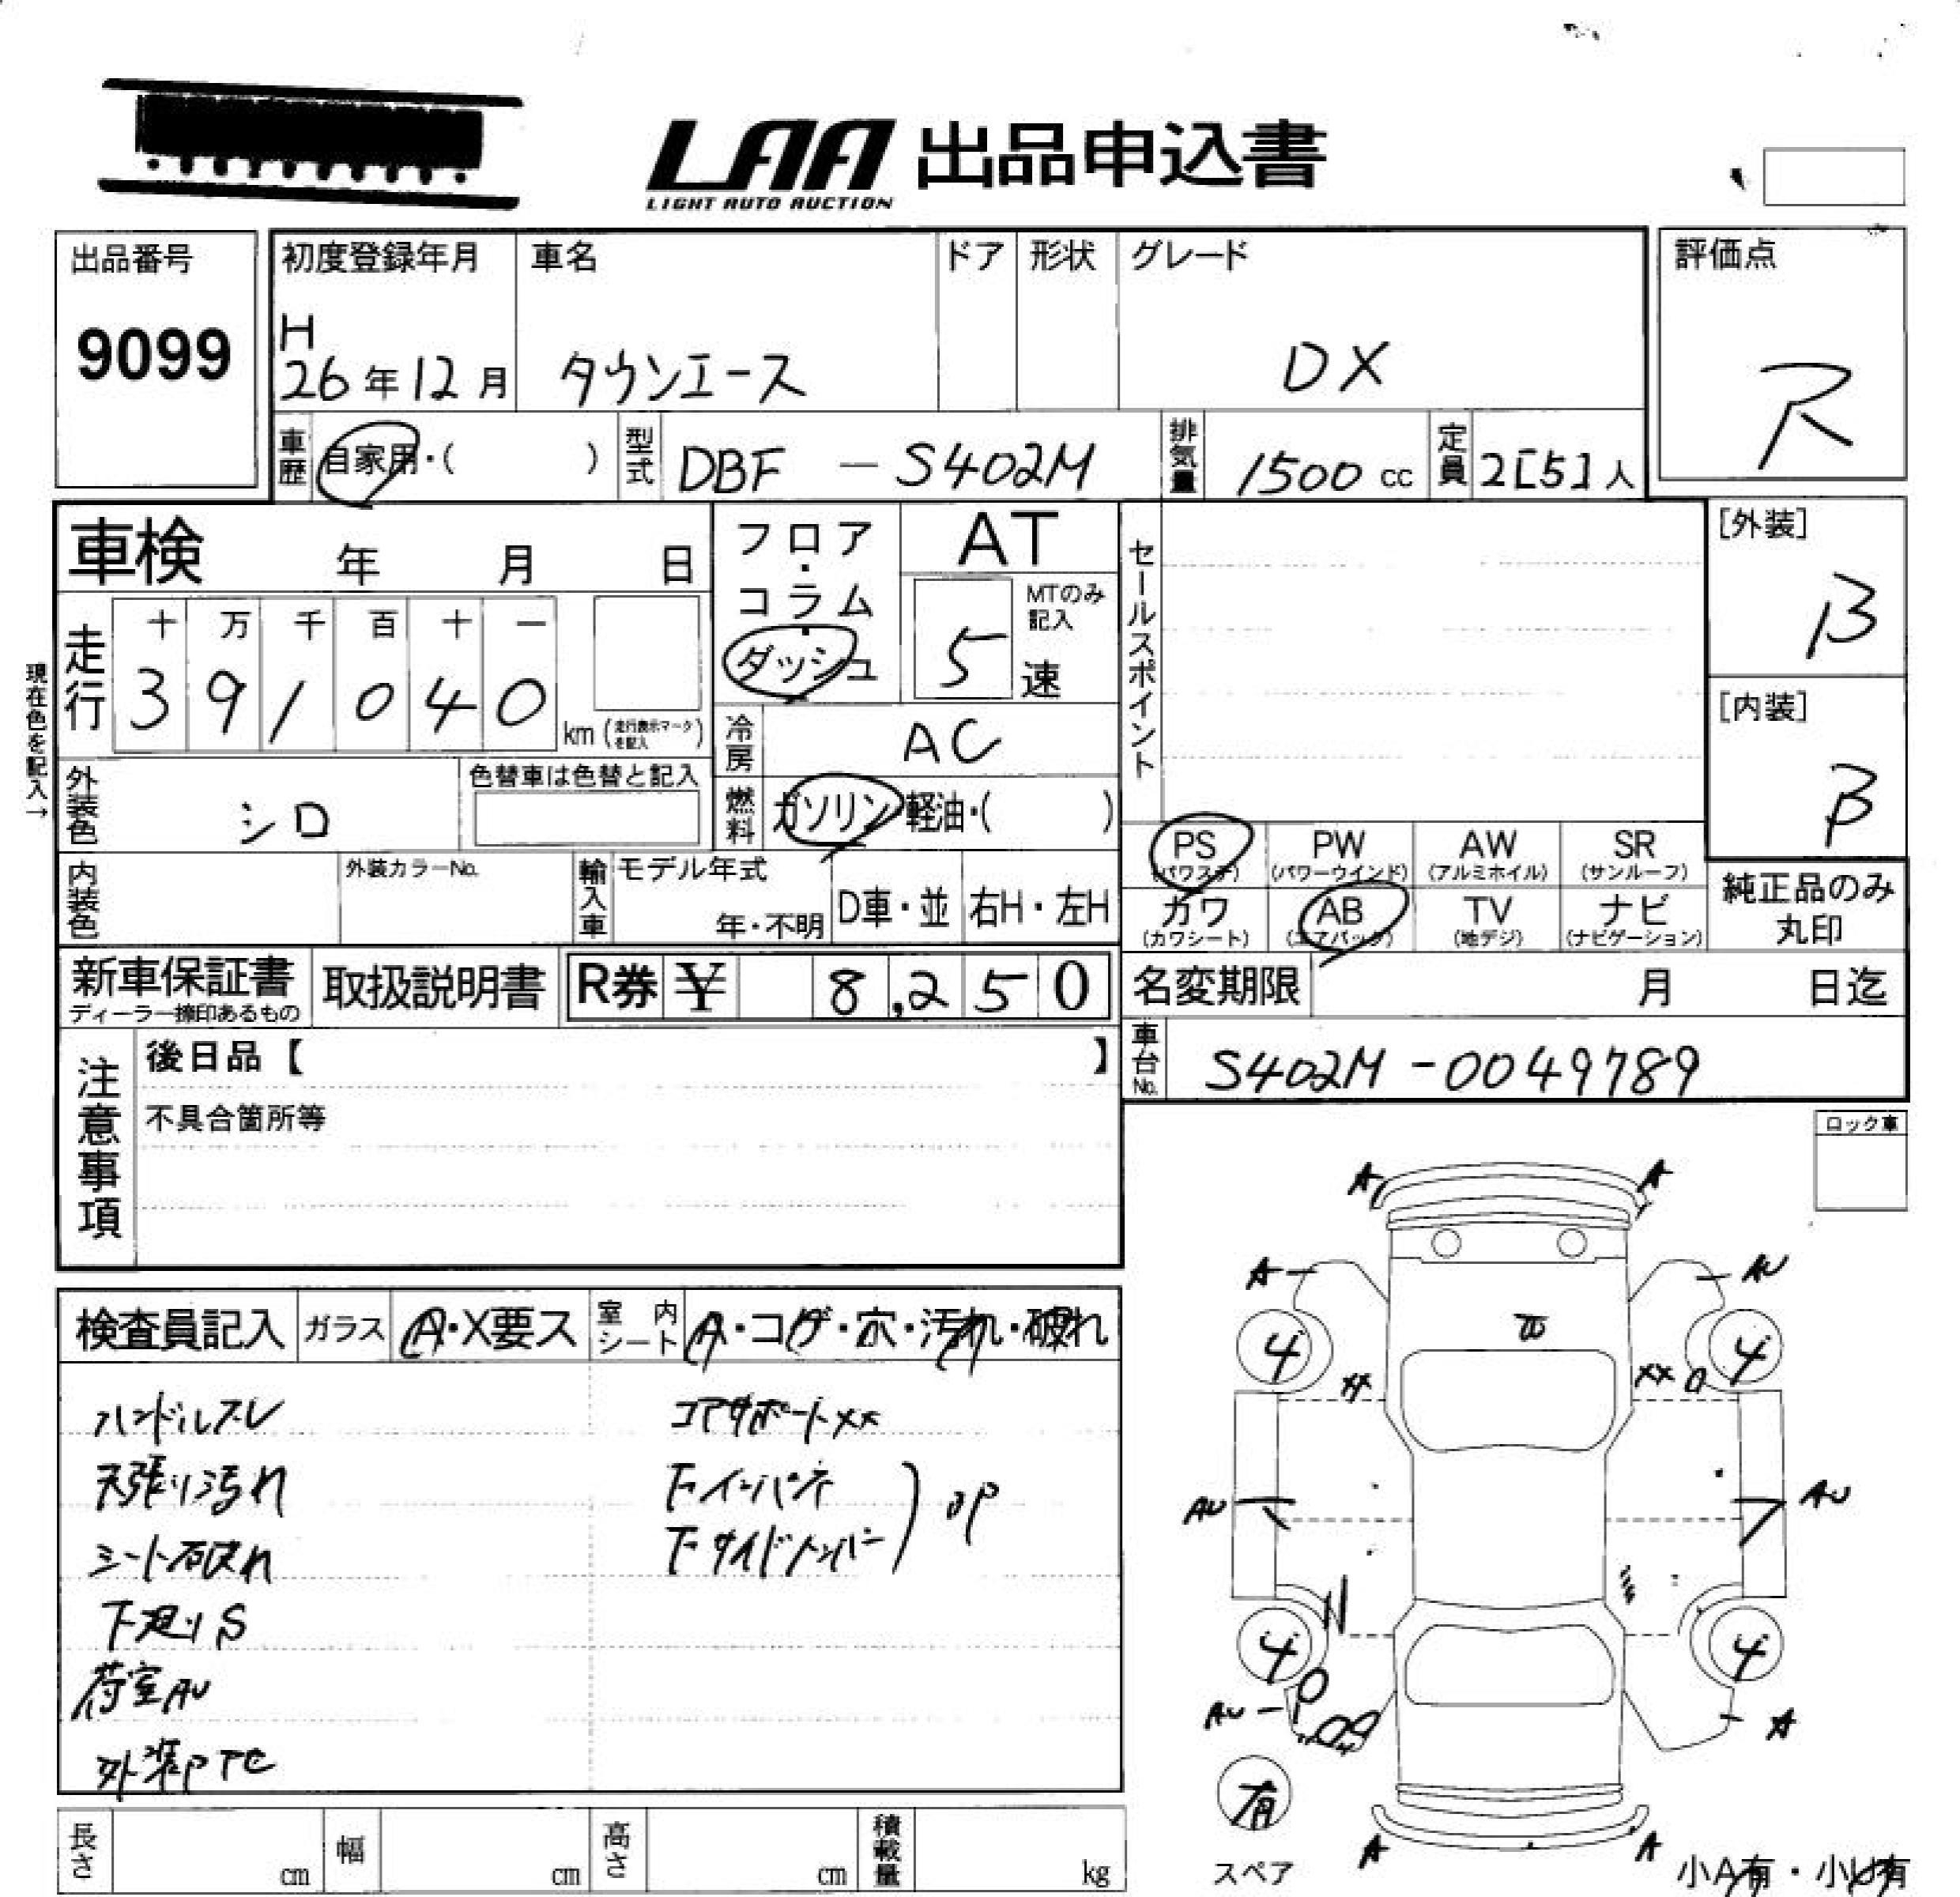 LAA 出品申込書
LIGHT AUTO AUCTION
出品番号
9099
初度登録年月
H
26年12月
車名
タウンエース
ドア
形状
グレード
DX
評価点
R
車歴
自家用・( )
型式
DBF - S402M
排気量
1500 cc
定員
2[5]人
車検 年 月 日
フロア・コラム・ダッシュ
AT
MTのみ記入
5速
セールスポイント
[外装]
B
[内装]
B
現在色を記入→
走行
十 万 千 百 十 一
3 9 1 0 4 0
km (走行表示マークを記入)
冷房
AC
外装色
シロ
色替車は色替と記入
燃料
ガソリン・軽油・( )
PS (パワステ)
PW (パワーウインド)
AW (アルミホイル)
SR (サンルーフ)
カワ (カワシート)
AB (エアバック)
TV (地デジ)
ナビ (ナビゲーション)
純正品のみ
丸印
内装色
外装カラーNo.
輸入車
モデル年式
年・不明
D車・並
右H・左H
新車保証書
ディーラー捺印あるもの
取扱説明書
R券 ¥ 8,250
名変期限 月 日迄
車台No.
S402M-0049789
注意事項
後日品【 】
不具合箇所等
ロック車
検査員記入
ガラス
A・X要ス
室内シート
A・コゲ・穴・汚れ・破れ
ハンドルスレ
コアサポートXX
天張り汚れ
シート破れ
下廻りS
荷室AU
A A
A AU
4 4
XX XX
AU AU
4 4
AU A
有
スペア
A A
小A有・小U有
長さ cm
幅 cm
高さ cm
積載量 kg